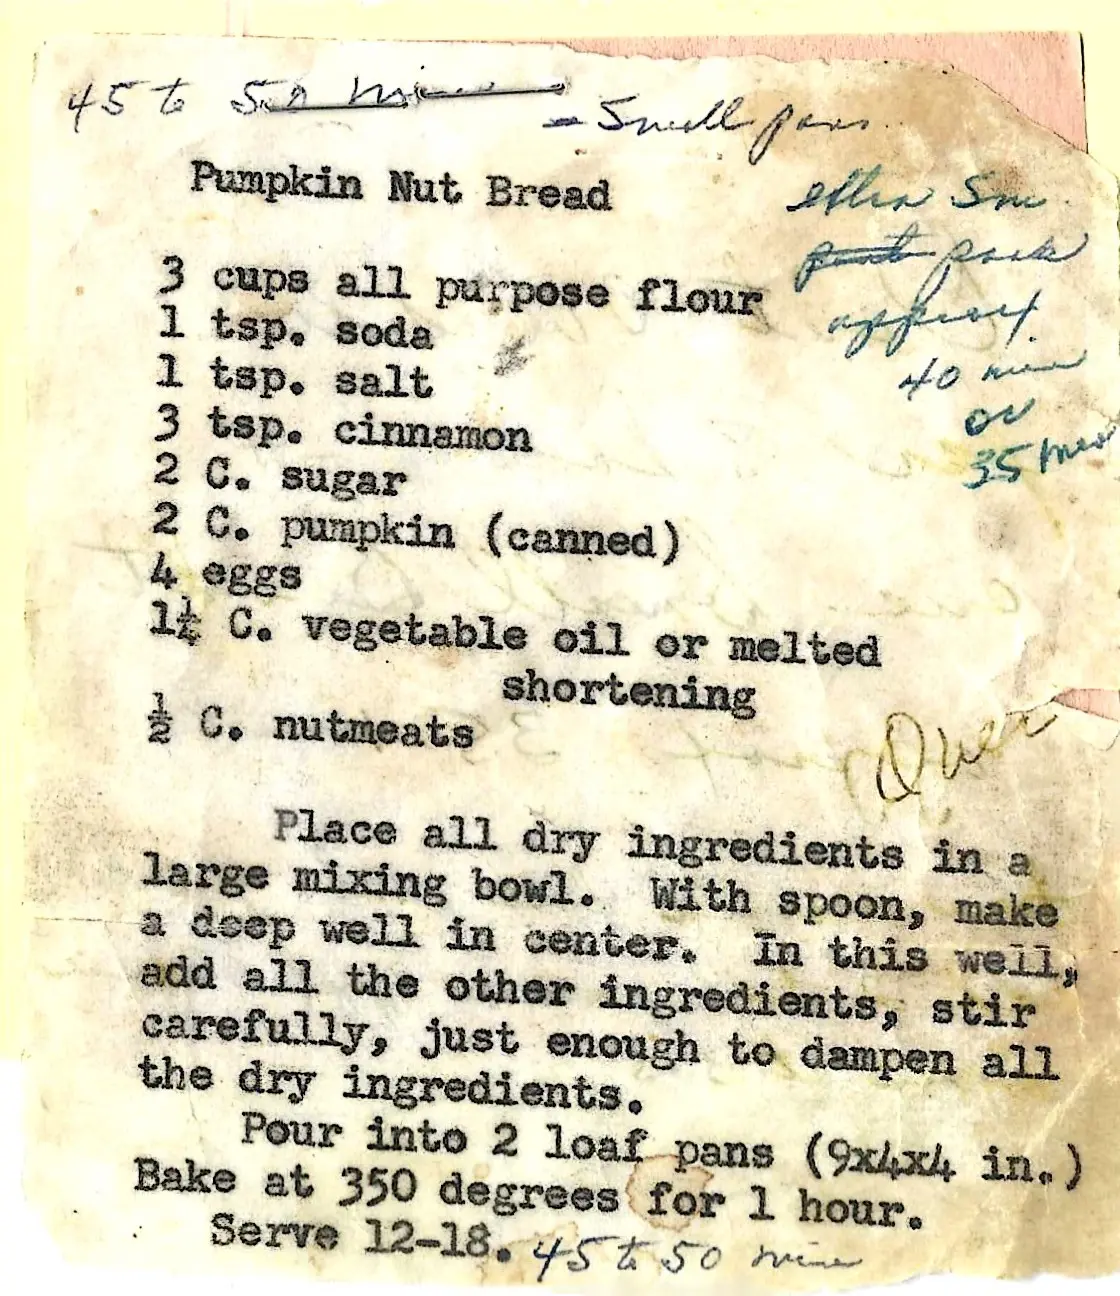 45 to 50 min
- Small pans
Pumpkin Nut Bread
extra Sm
pans
approx
40 min
or
35 min
3 cups all purpose flour
1 tsp. soda
1 tsp. salt
3 tsp. cinnamon
2 C. sugar
2 C. pumpkin (canned)
4 eggs
1¼ C. vegetable oil or melted
shortening
½ C. nutmeats
Over
Place all dry ingredients in a
large mixing bowl. With spoon, make
a deep well in center. In this well,
add all the other ingredients, stir
carefully, just enough to dampen all
the dry ingredients.
Pour into 2 loaf pans (9x4x4 in.)
Bake at 350 degrees for 1 hour.
Serve 12-18. 45 to 50 min